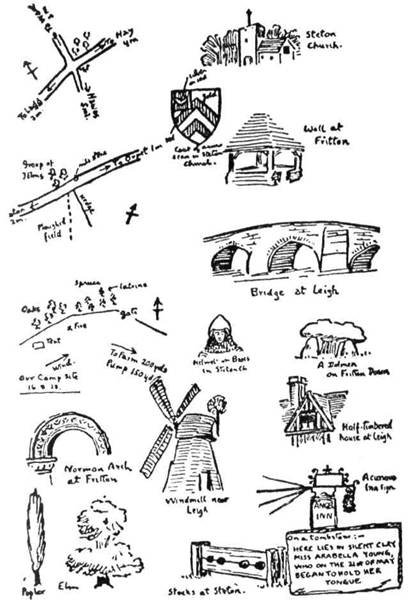 To Hay
4 m.
Steton
Church.
Coat of arms
seen in Steton
Church.
Well at
Fritton
Group of
3 Elms
hedge
Ploughed
field
Bridge at Leigh
Spruce
latrine
Oaks
gate
a fire
Tent
wind.
To Farm 200 yds
Pump 150 yds
Our Camp Site
A Dolmen
on Fritton Down
Half-timbered
house at Leigh
Norman Arch
at Fritton
Windmill near
Leigh
A curious
Inn sign
ANGEL
INN
On a tombstone:-
HERE LIES IN SILENT CLAY
MISS ARABELLA YOUNG,
WHO ON THE 21ST OF MAY
BEGAN TO HOLD HER
TONGUE
Poplar
Elm
Stocks at Steton.